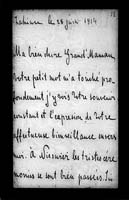 le 28 juin 1914
Ma bien chère Grand'Maman
Votre petit mot m'a touché pro-
fondement j'y vois votre souvenir
constant et l'expression de votre
affectueuse bienveillance envers
moi. à les tristes céré
monies se sont bien passées.